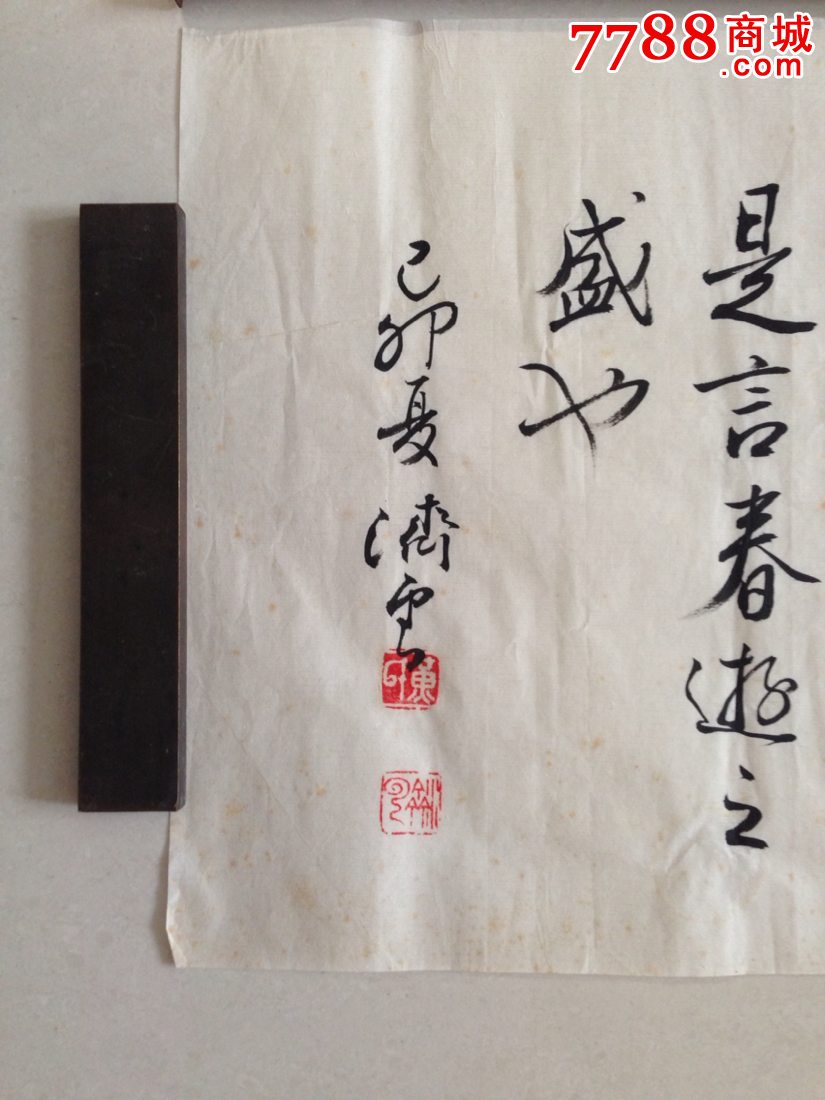 7788商城
.com
是言春遊之
盛也
己卯夏濟雲